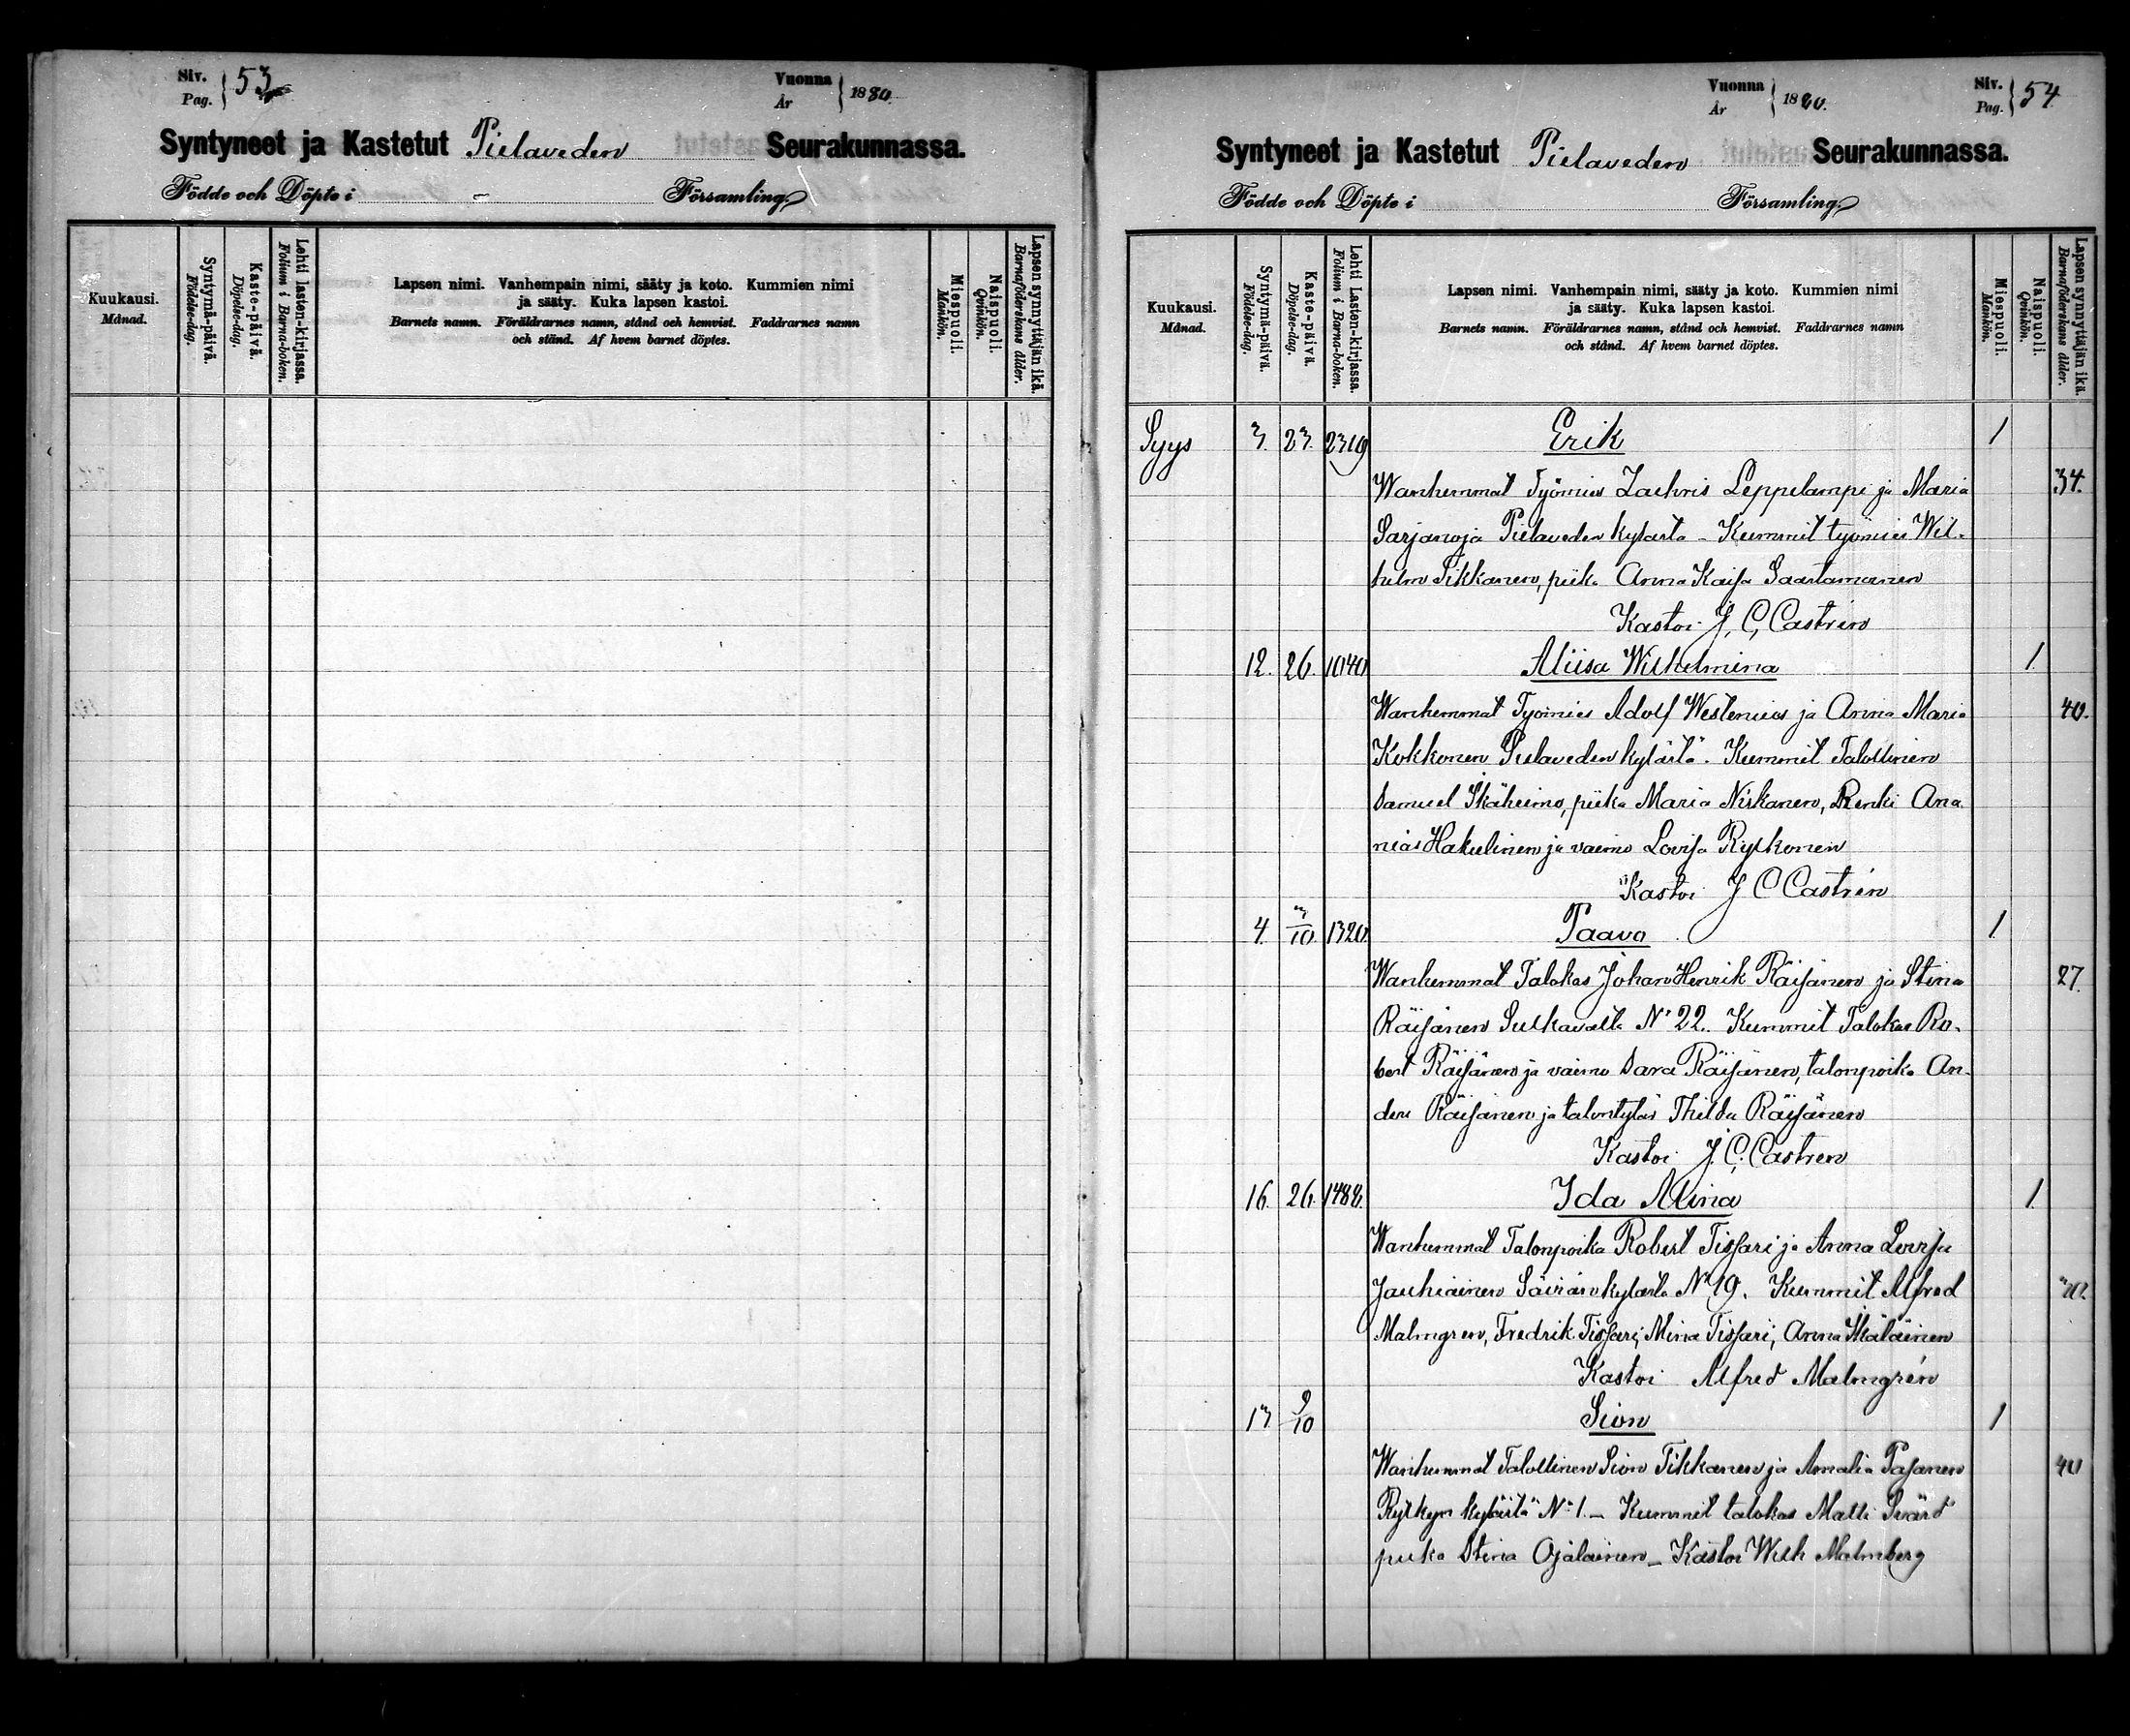 Siv. Pag. 53
Vuonna År 1880.
Syntyneet ja Kastetut Pielaveden Seurakunnassa.
Födde och Döpte i - Församling.
Kuukausi. Månad.
Syntymä-päivä. Födelse-dag.
Kaste-päivä. Döpelse-dag.
Lehti lasten-kirjassa. Folium i Barna-boken.
Lapsen nimi. Vanhempain nimi, sääty ja koto. Kummien nimi
ja sääty. Kuka lapsen kastoi.
Barnets namn. Föräldrarnes namn, stånd och hemvist. Faddrarnes namn
och stånd. Af hvem barnet döptes.
Miespuoli. Mankön.
Naispuoli. Qvinkön.
Lapsen synnyttäjän ikä. Barnaföderskans ålder.
Vuonna År 1880.
Siv. Pag. 54
Syntyneet ja Kastetut Pielaveden Seurakunnassa.
Födde och Döpte i Församling.
Kuukausi. Månad.
Syntymä-päivä. Födelse-dag.
Kaste-päivä. Döpelse-dag.
Lehti Lasten-kirjassa. Folium i Barna-boken.
Lapsen nimi. Vanhempain nimi, sääty ja koto. Kummien nimi
ja sääty. Kuka lapsen kastoi.
Barnets namn. Föräldrarnes namn, stånd och hemvist. Faddrarnes namn
och stånd. Af hvem barnet döptes.
Miespuoli. Mankön.
Naispuoli. Qvinkön.
Lapsen synnyttäjän ikä. Barnaföderskans ålder.
Syys 3. 23. 2319 Erik 1
Wanhemmat Työmies Zachris Leppelampi ja Maria 34.
Sarjanoja Pielaveden kylästä - Kummit työmies Wil-
helm Tikkanen, piika Anna Kaisa Saastamoinen
Kastoi J. C. Castrén
12. 26. 1040 Aliisa Wilhelmina 1.
Wanhemmat Työmies Adolf Westenius ja Anna Maria 40.
Kokkonen Pielaveden kylästä. Kummit Talollinen
Samuel Ikäheimo, piika Maria Niskanen, Renki Ana
nias Hakulinen ja vaimo Lovisa Rytkönen
Kastoi J C Castrén
4. 3/10. 1320. Paavo 1.
Wanhemmat Talokas Johan Henrik Räisänen ja Stina 27.
Räisänen Sulkavalta No 22. Kummit Talokas Ro-
bert Räisänen ja vaimo Sara Räisänen, talonpoika An-
ders Räisänen ja talontytär Thilda Räisänen
Kastoi J. C. Castren
16. 26. 1488. Ida Alina 1.
Wanhemmat Talonpoika Robert Tissari ja Anna Lovisa
Jauhiainen Säviän kylästä No 19. Kummit Alfred
Malmgren, Fredrik Tissari, Mina Tissari, Anna Ikäläinen
Kastoi Alfred Malmgrén
13 9/10 Sion 1
Wanhemmat Talollinen Sion Tikkanen ja Amalia Pasanen 40
Rytkyn kylästä No 1. - Kummit talokas Matti Svärd
piika Stina Ojalainen - Kastoi Wilh Malmberg